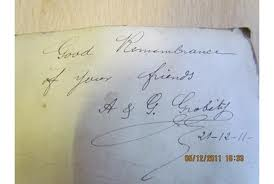 Good Remembrance
of your friends
A & G. Grobity
21-12-11-
06/12/2011 16:33